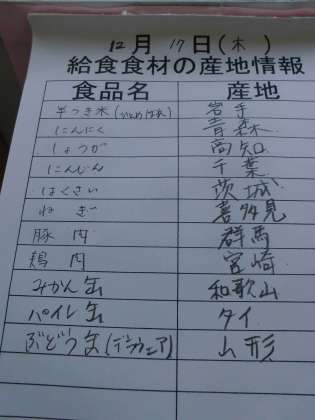 12月 17日(木)
給食食材の産地情報
食品名 産地
半つき米 岩手
にんにく 青森
しょうが 高知
にんじん 千葉
はくさい 茨城
ねぎ 喜多見
豚肉 群馬
鶏肉 宮崎
みかん缶 和歌山
パイン缶 タイ
ぶどう缶 山形